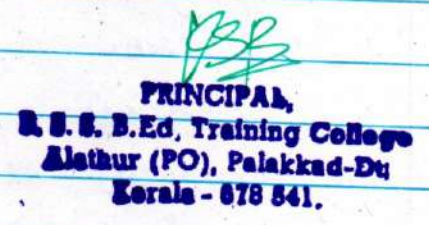 PRINCIPAL,
B.Ed, Training College
Alathur (PO), Palakkad-Dt;
Kerala - 678 541.